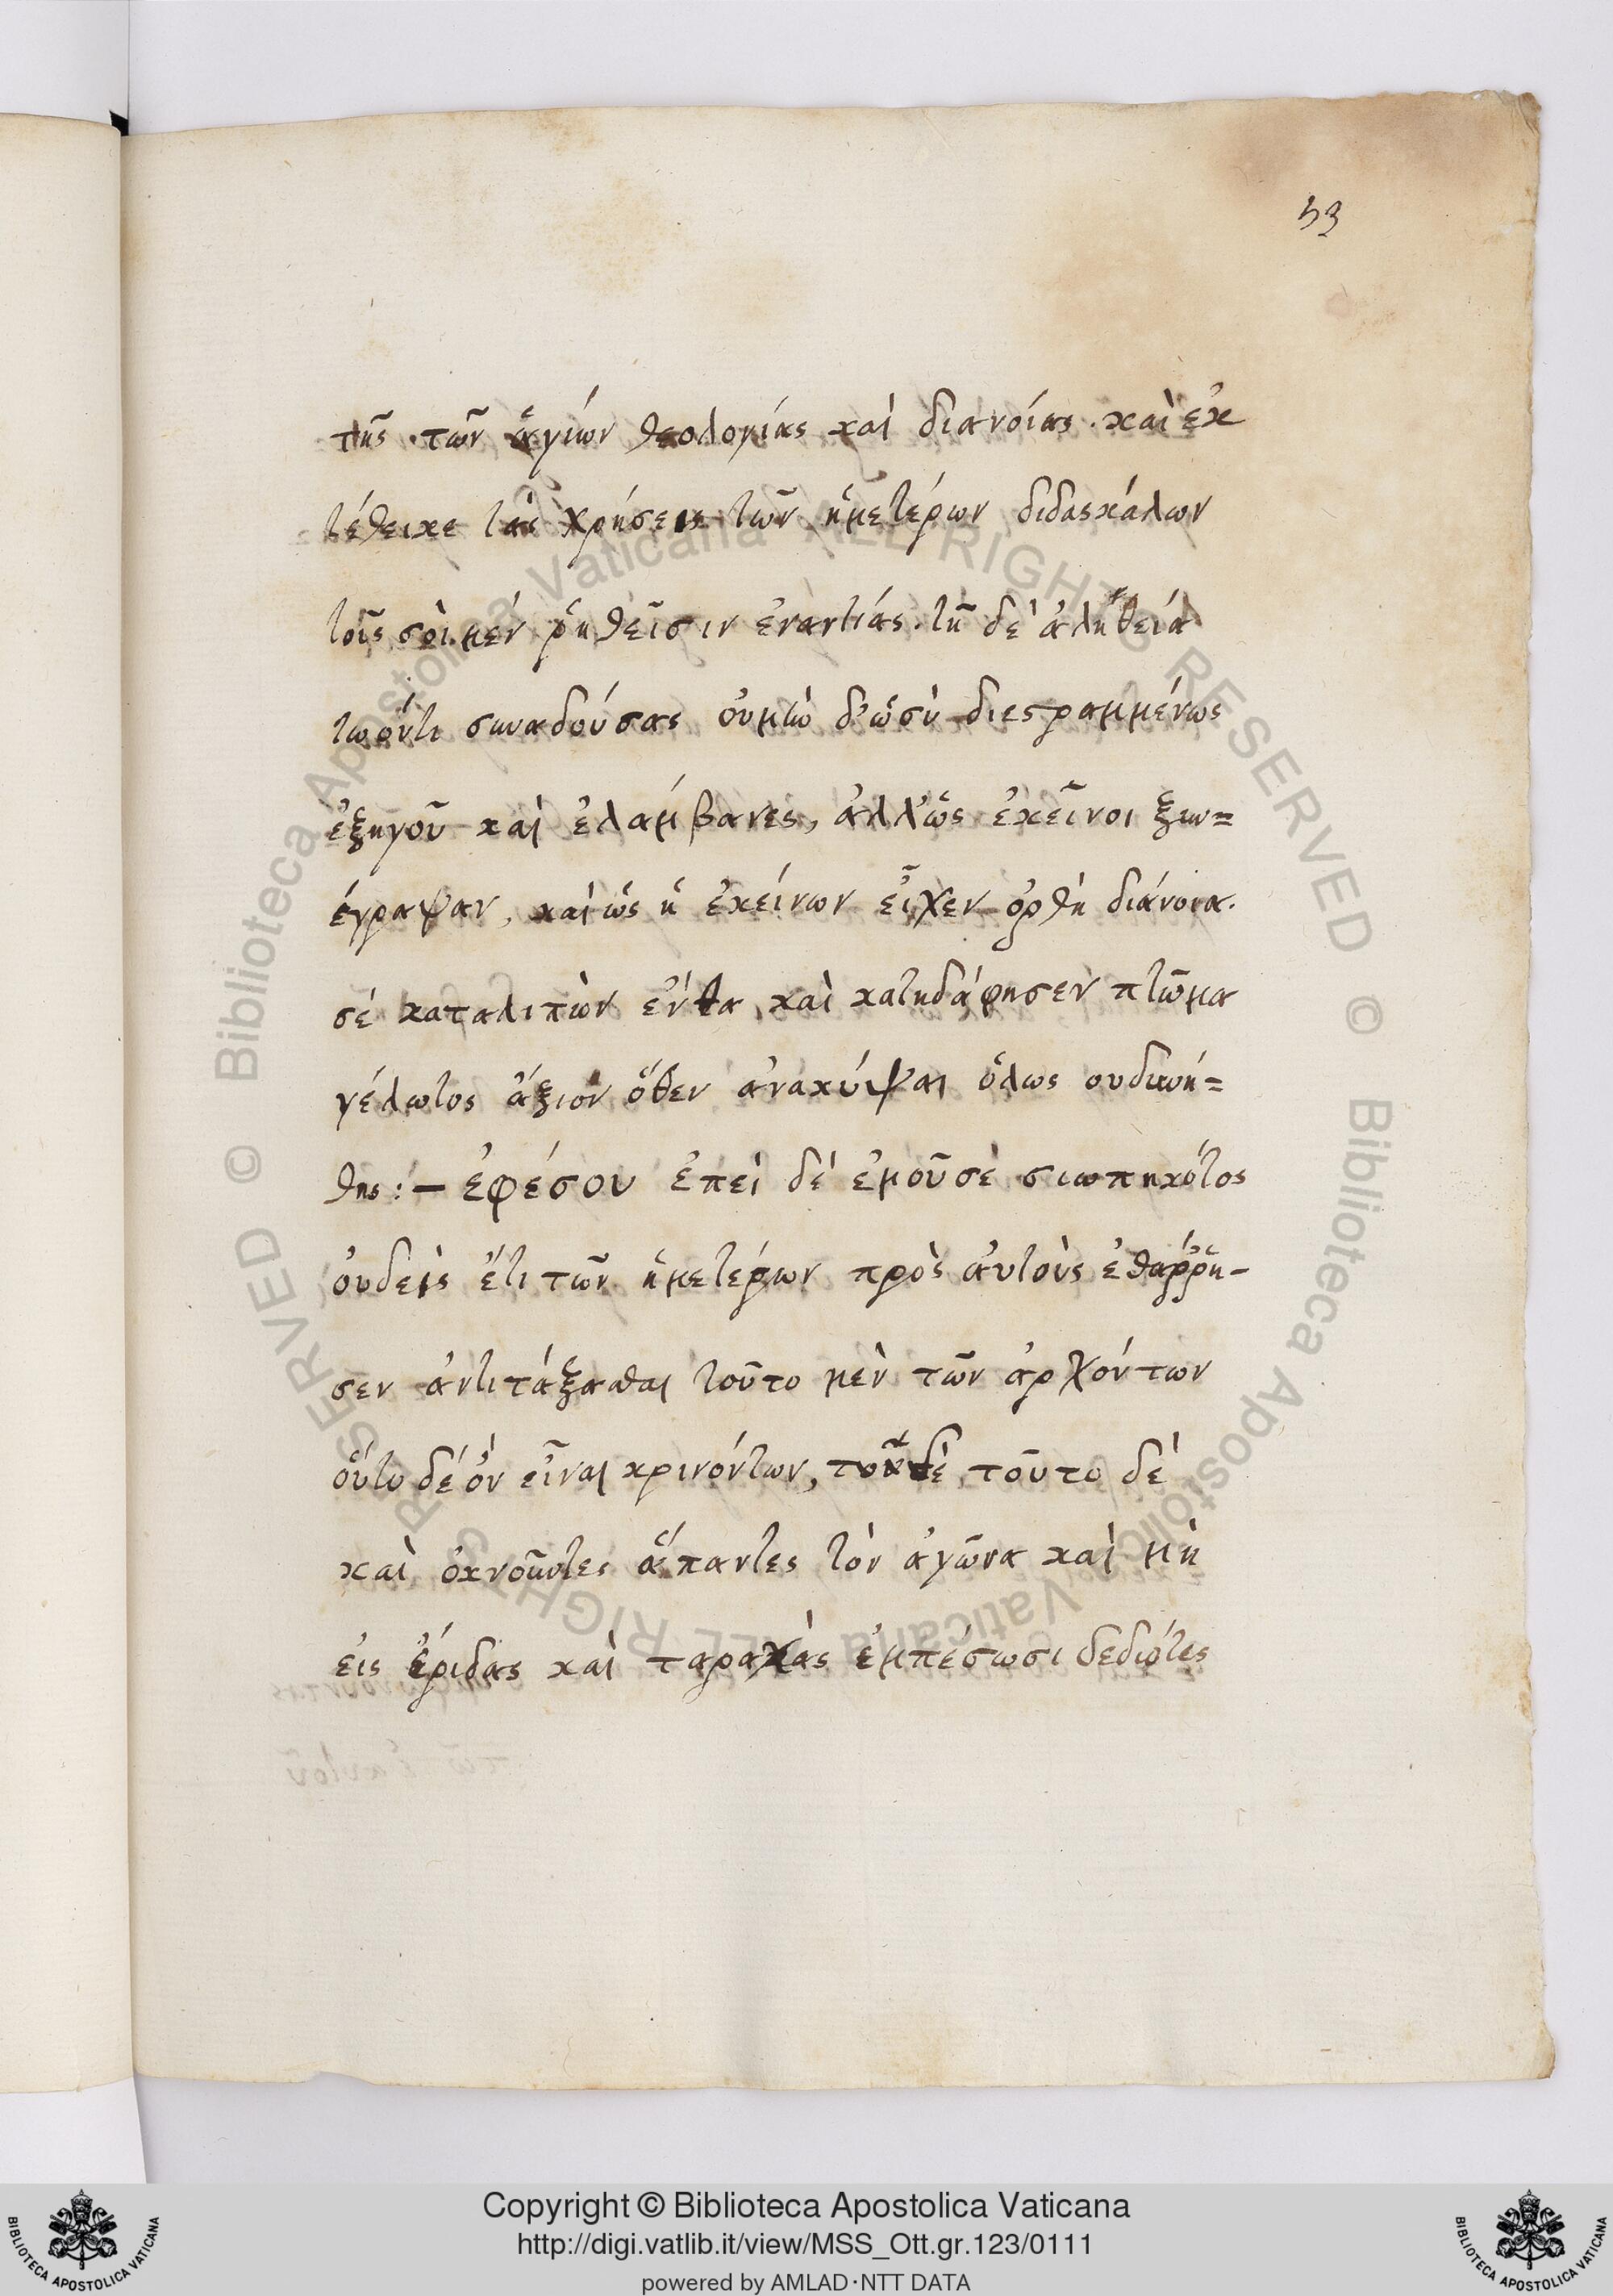 53
τῆς. τῶν ἁγίων θεολογίας καὶ διανοίας. καὶ ἐκ
τέθεικε τὰς χρήσεις τῶν ἡμετέρων διδασκάλων
τοῖς σοὶ μέν ῥηθεῖσιν ἐναντίας. τῆ δὲ ἀληθεία
τωόντι συναδούσας οὐμὴν δ'ὡσὺ διεστραμμένως
ἐξηγοῦ καὶ ἐλάμβανες, ἀλλ'ὡς ἐκεῖνοι ξυν=
έγραψαν, καὶ ὡς ἡ ἐκείνων εἶχεν ὀρθὴ διάνοια.
σέ καταλιπὼν ἔνθα καὶ κατηδάφησεν πτῶμα
γέλωτος ἄξιον ὅθεν ἀνακύψαι ὅλως ουδινή=
θης:— ἐφέσου ἐπεὶ δέ ἐμοῦσὲ σιωπηκότος
ὀυδεὶς ἔτι τῶν ἡμετέρων πρὸς ἀυτοὺς ἐθαῤῥη-
σεν ἀντιτάξασθαι τοῦτο μὲν τῶν ἀρχόντων
οὕτω δέὀν εἶναι κρινόντων, τοῦτο δέ
καὶ ὀκνοῦντες ἅπαντες τὸν ἀγῶνα καὶ μὴ
εἰς ἔριδας καὶ ταραχὰς ἐμπέσωσι δεδιότες
© Biblioteca Apostolica Vaticana ALL RIGHTS RESERVED © Biblioteca Apostolica Vaticana ALL RIGHTS RESERVED
Copyright © Biblioteca Apostolica Vaticana
http://digi.vatlib.it/view/MSS_Ott.gr.123/0111
powered by AMLAD·NTT DATA
BIBLIOTECA APOSTOLICA VATICANA
BIBLIOTECA APOSTOLICA VATICANA